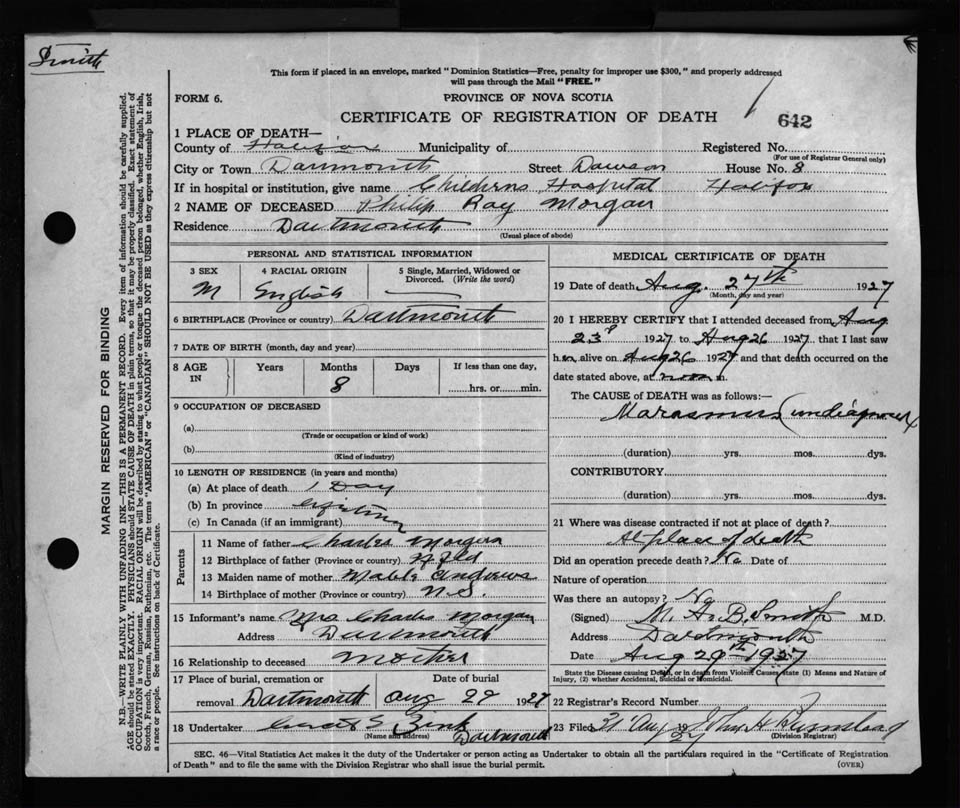 Smith
This form if placed in an envelope, marked "Dominion Statistics—Free, penalty for improper use $300," and properly addressed
will pass through the Mail "FREE."
FORM 6.
PROVINCE OF NOVA SCOTIA
CERTIFICATE OF REGISTRATION OF DEATH
642
1 PLACE OF DEATH—
County of Halifax Municipality of Registered No.
(For use of Registrar General only)
City or Town Dartmouth Street Dawson House No. 8
If in hospital or institution, give name Childrens Hospital Halifax
2 NAME OF DECEASED Philip Ray Morgan
Residence Dartmouth
(Usual place of abode)
PERSONAL AND STATISTICAL INFORMATION
3 SEX 4 RACIAL ORIGIN 5 Single, Married, Widowed or
Divorced. (Write the word)
M English
6 BIRTHPLACE (Province or country) Dartmouth
7 DATE OF BIRTH (month, day and year)
8 AGE IN Years Months Days If less than one day,
8 hrs. or min.
9 OCCUPATION OF DECEASED
(a)
(Trade or occupation or kind of work)
(b)
(Kind of industry)
10 LENGTH OF RESIDENCE (in years and months)
(a) At place of death 1 Day
(b) In province
(c) In Canada (if an immigrant)
Parents
11 Name of father Charles Morgan
12 Birthplace of father (Province or country) Nfld
13 Maiden name of mother Mable Andrews
14 Birthplace of mother (Province or country) N.S.
15 Informant's name Mrs Charles Morgan
Address Dartmouth
16 Relationship to deceased Mother
17 Place of burial, cremation or Date of burial
removal Dartmouth Aug 29 1927
18 Undertaker Zink
(Name and address) Dartmouth
MEDICAL CERTIFICATE OF DEATH
19 Date of death Aug. 27th 1927
(Month, day and year)
20 I HEREBY CERTIFY that I attended deceased from Aug
23 1927 to Aug 26 1927 that I last saw
h im alive on Aug 26 1927 and that death occurred on
date stated above, at noon m.
The CAUSE of DEATH was as follows:—
Marasmus (undiagnosed)
(duration) yrs. mos. dys.
CONTRIBUTORY
(duration) yrs. mos. dys.
21 Where was disease contracted if not at place of death?
At place of death
Did an operation precede death? No Date of
Nature of operation
Was there an autopsy? No
(Signed) M. A. B. Smith M.D.
Address Dartmouth
Date Aug 29th 1927
State the Disease causing Death, or in death from Violent Causes state (1) Means and Nature of
Injury, (2) whether Accidental, Suicidal or Homicidal.
22 Registrar's Record Number
23 Filed 31 Aug 1927 John H
(Division Registrar)
SEC. 46—Vital Statistics Act makes it the duty of the Undertaker or person acting as Undertaker to obtain all the particulars required in the "Certificate of Registration
of Death" and to file the same with the Division Registrar who shall issue the burial permit. (OVER)
MARGIN RESERVED FOR BINDING
N.B.—WRITE PLAINLY WITH UNFADING INK—THIS IS A PERMANENT RECORD. Every item of information should be carefully supplied.
AGE should be stated EXACTLY. PHYSICIANS should STATE CAUSE OF DEATH in plain terms, so that it may be properly classified. Exact statement of
OCCUPATION is very important. RACIAL ORIGIN will be described by stating to what people or tongue the deceased person belonged, whether English, Irish,
Scotch, French, German, Russian, Ruthenian, etc. The terms "AMERICAN" or "CANADIAN" SHOULD NOT BE USED as they express citizenship but not
a race or people. See instructions on back of Certificate.